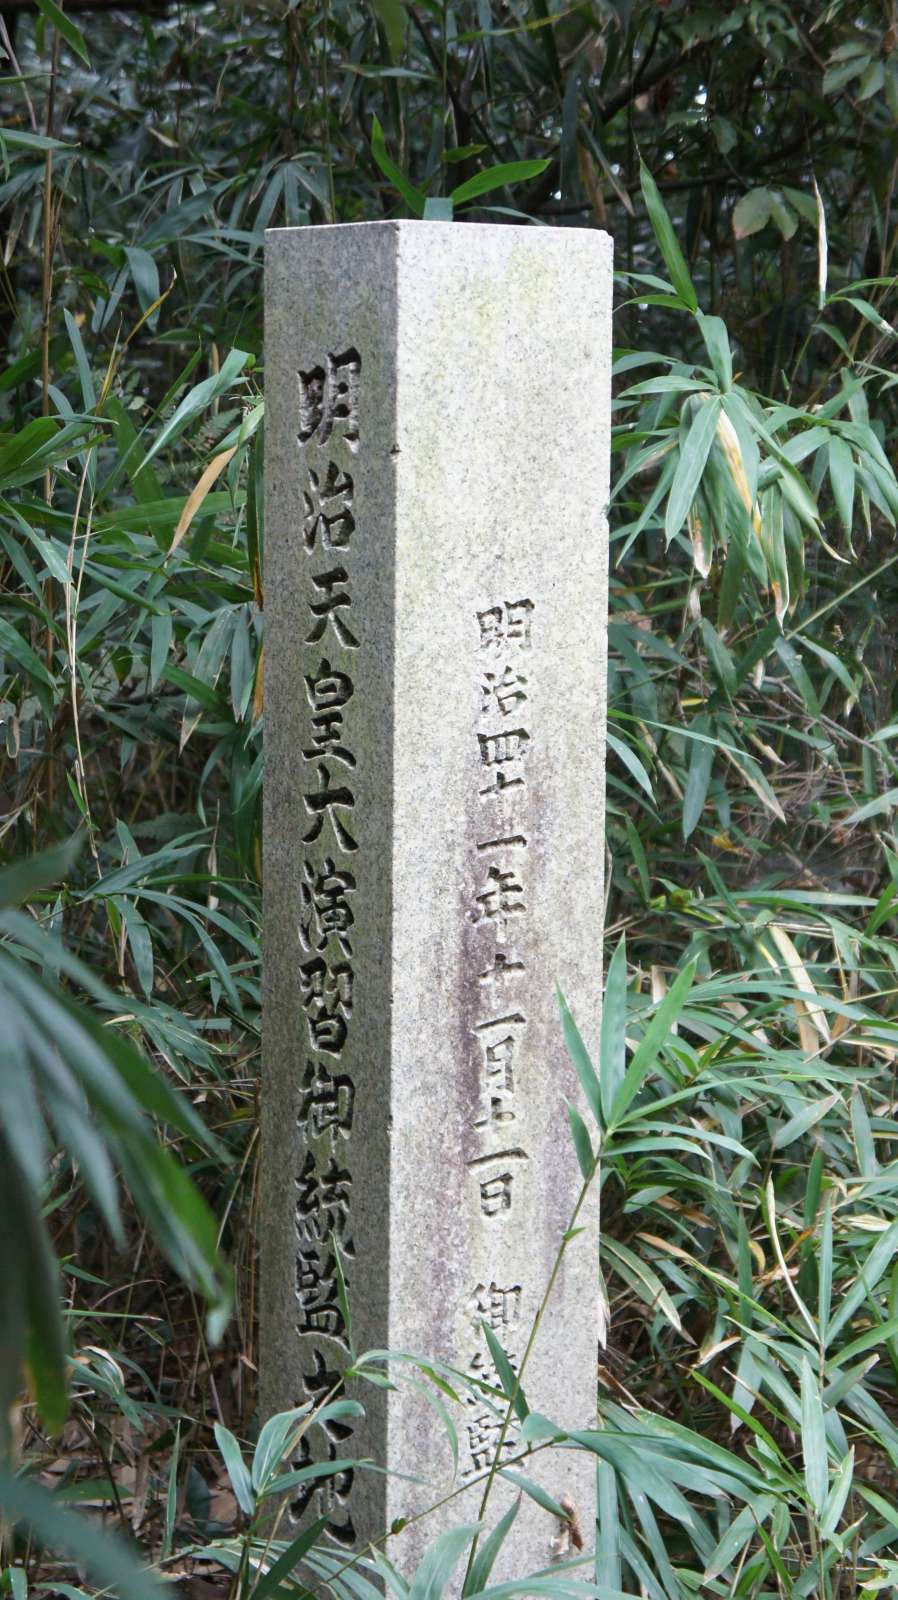 明治天皇大演習御統監之地
明治四十一年十一月十一日 御統監